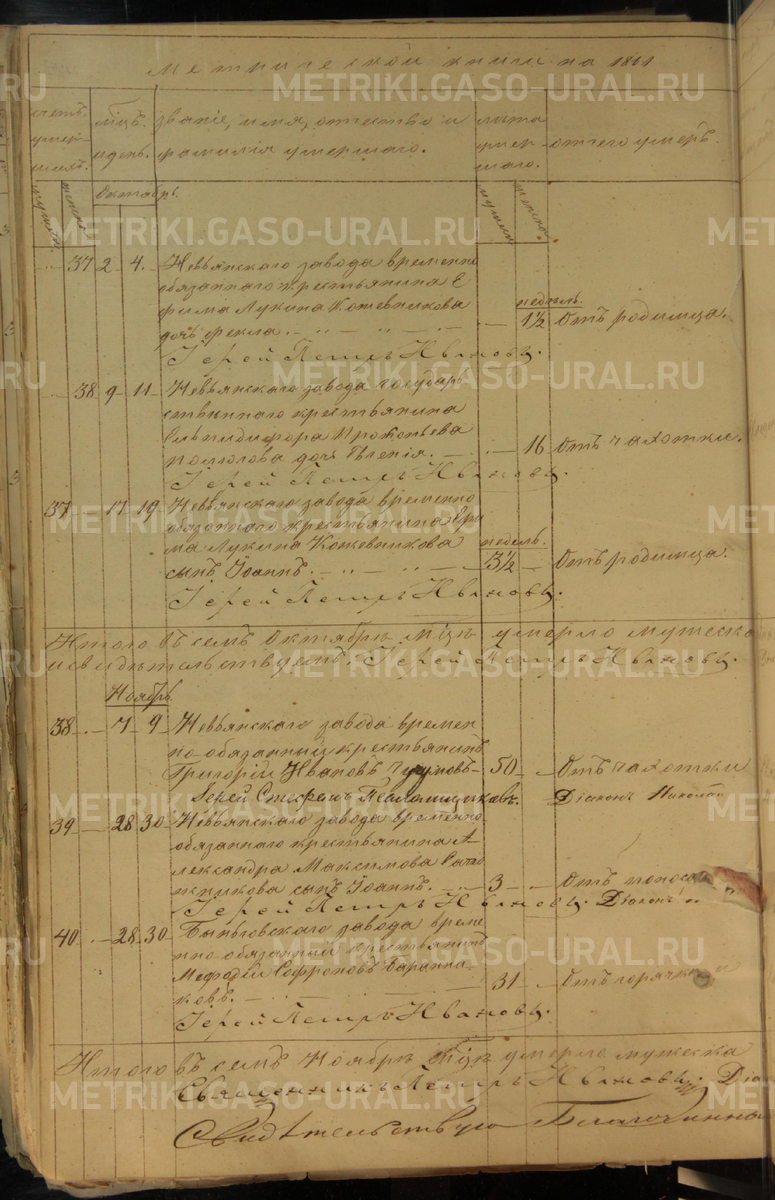 Метрической книги на 1861
счетъ умер- шихъ. Мѣцъ. и день. званіе, имя, отчество и фамилія умершаго. лѣта умер- шаго. отчего умеръ.
мужеск. женска. Октябрь. мужеск женска
37 2 4. Невьянскаго завода временно
обязаннаго крестьянина Е
фима Лукина Кожевникова недѣль.
дочь Ѳекла. 1½ Отъ родимца.
Іерей Петръ Ивановъ.
38 9 11 Невьянскаго завода государ
ственнаго крестьянина
Елпидифора Прокопьева
дочь Евгенія. 16 Отъ чахотки.
Іерей Петръ Ивановъ.
37 17 19 Невьянскаго завода временно
обязаннаго крестьянина Ефи
ма Лукина Кожевникова недѣль.
сынъ Іоаннъ. 3½ Отъ родимца.
Іерей Петръ Ивановъ.
Итого въ семъ Октябрѣ мѣцѣ умерло мужеска
Іерей Петръ Ивановъ.
Ноябрь.
38 7 9 Невьянскаго завода времен
но обязанный крестьянинъ
Григорій Ивановъ 50 Отъ чахотки
Іерей Стефанъ Діаконъ Николай
39 28 30 Невьянскаго завода временно
обязаннаго крестьянина А-
лександра Максимова
сынъ Іоаннъ. 3 Отъ поноса
Іерей Петръ Ивановъ. Діаконъ
40 28 30 Быньговскаго завода време
нно обязанный крестьянинъ
Мефодій Софроновъ Баранни-
ковъ. 31 Отъ горячки
Іерей Петръ Ивановъ.
Итого въ семъ Ноябрѣ мѣцѣ умерло мужеска
Священникъ Петръ Ивановъ. Діа
Свидѣтельствую Благочинной
METRIKI.GASO-URAL.RU